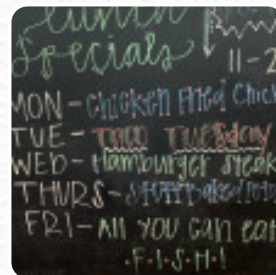 Lunch
Specials
11-2
MON - Chicken Fried Chick
TUE - TACO TUESDAY
WED - Hamburger Steak
THURS - Stuff Baked Pot
FRI - All you can eat
·F·I·S·H·!